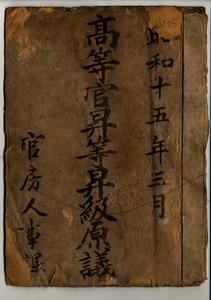 昭和十五年三月
高等官昇等昇級原議
官房人事課